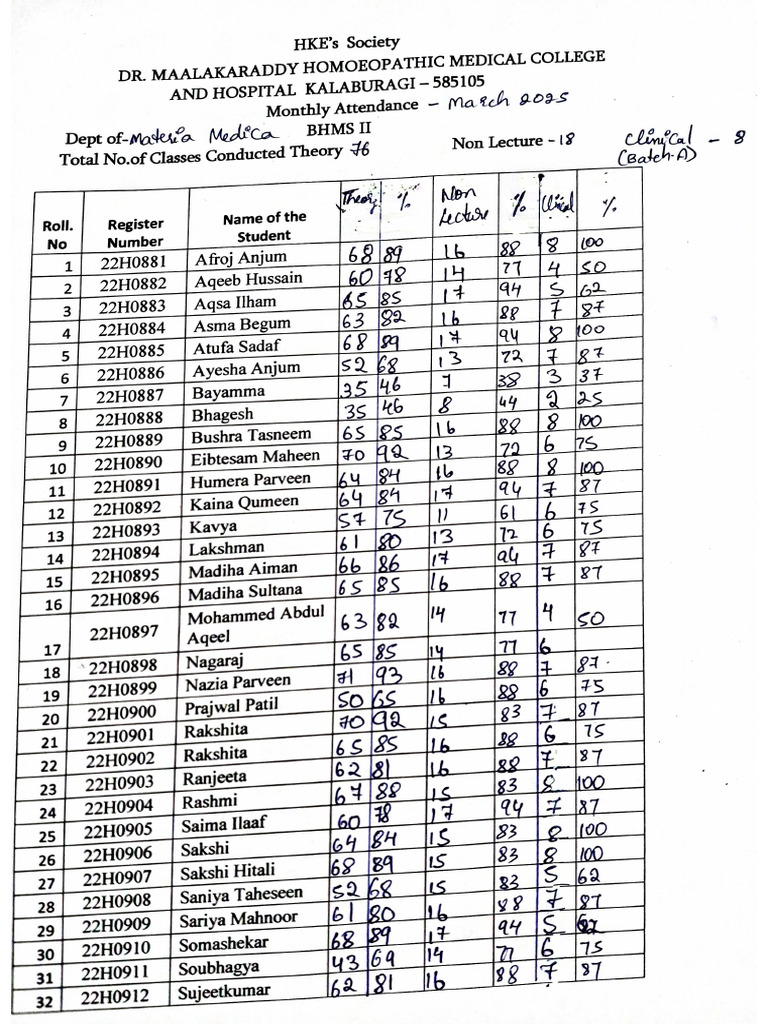 HKE's Society
DR. MAALAKARADDY HOMOEOPATHIC MEDICAL COLLEGE
AND HOSPITAL KALABURAGI – 585105
Monthly Attendance – March 2025
Dept of-Materia Medica BHMS II
Total No.of Classes Conducted Theory 76 Non Lecture - 18 Clinical (Batch-A) - 8
Roll. No Register Number Name of the Student Theory % Non Lecture % Clinical %
1 22H0881 Afroj Anjum 68 89 16 88 8 100
2 22H0882 Aqeeb Hussain 60 78 14 77 4 50
3 22H0883 Aqsa Ilham 65 85 17 94 5 62
4 22H0884 Asma Begum 63 82 16 88 7 87
5 22H0885 Atufa Sadaf 68 89 17 94 8 100
6 22H0886 Ayesha Anjum 52 68 13 72 7 87
7 22H0887 Bayamma 35 46 7 38 3 37
8 22H0888 Bhagesh 35 46 8 44 2 25
9 22H0889 Bushra Tasneem 65 85 16 88 8 100
10 22H0890 Eibtesam Maheen 70 92 13 72 6 75
11 22H0891 Humera Parveen 64 84 16 88 8 100
12 22H0892 Kaina Qumeen 64 84 17 94 7 87
13 22H0893 Kavya 57 75 11 61 6 75
14 22H0894 Lakshman 61 80 13 72 6 75
15 22H0895 Madiha Aiman 66 86 17 94 7 87
16 22H0896 Madiha Sultana 65 85 16 88 7 87
17 22H0897 Mohammed Abdul Aqeel 63 82 14 77 4 50
18 22H0898 Nagaraj 65 85 14 77 6
19 22H0899 Nazia Parveen 71 93 16 88 7 87
20 22H0900 Prajwal Patil 50 65 16 88 6 75
21 22H0901 Rakshita 70 92 15 83 7 87
22 22H0902 Rakshita 65 85 16 88 6 75
23 22H0903 Ranjeeta 62 81 16 88 7 87
24 22H0904 Rashmi 67 88 15 83 8 100
25 22H0905 Saima Ilaaf 60 78 17 94 7 87
26 22H0906 Sakshi 64 84 15 83 8 100
27 22H0907 Sakshi Hitali 68 89 15 83 8 100
28 22H0908 Saniya Taheseen 52 68 15 83 5 62
29 22H0909 Sariya Mahnoor 61 80 16 88 7 87
30 22H0910 Somashekar 68 89 17 94 5 62
31 22H0911 Soubhagya 43 69 14 77 6 75
32 22H0912 Sujeetkumar 62 81 16 88 7 87